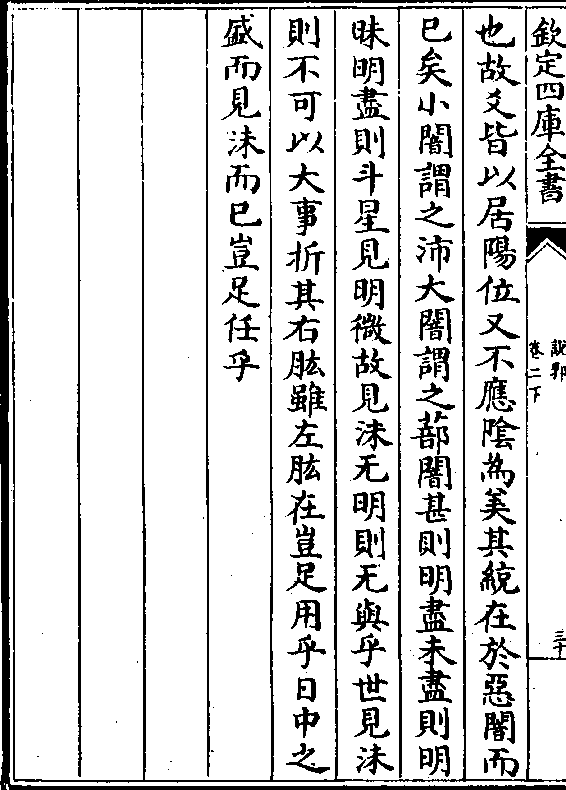 欽定四庫全書
說郛
卷二下
三十
也故爻皆以居陽位又不應陰為美其統在於惡闇而
已矣小闇謂之沛大闇謂之蔀闇甚則明盡未盡則明
昧明盡則斗星見明微故見沬无明則无與乎世見沬
則不可以大事折其右肱雖左肱在豈足用乎日中之
盛而見沬而已豈足任乎